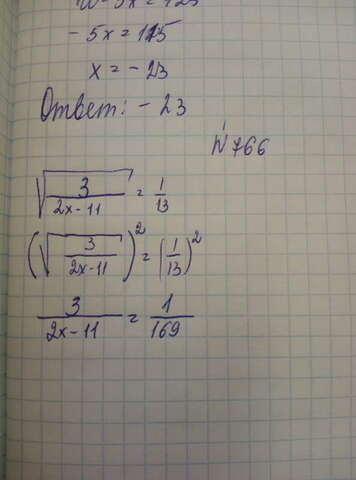 10 - 5x = 125
- 5x = 115
x = - 23
Ответ: - 23
№766
√(3/(2x-11)) = 1/13
(√(3/(2x-11)))² = (1/13)²
3/(2x-11) = 1/169